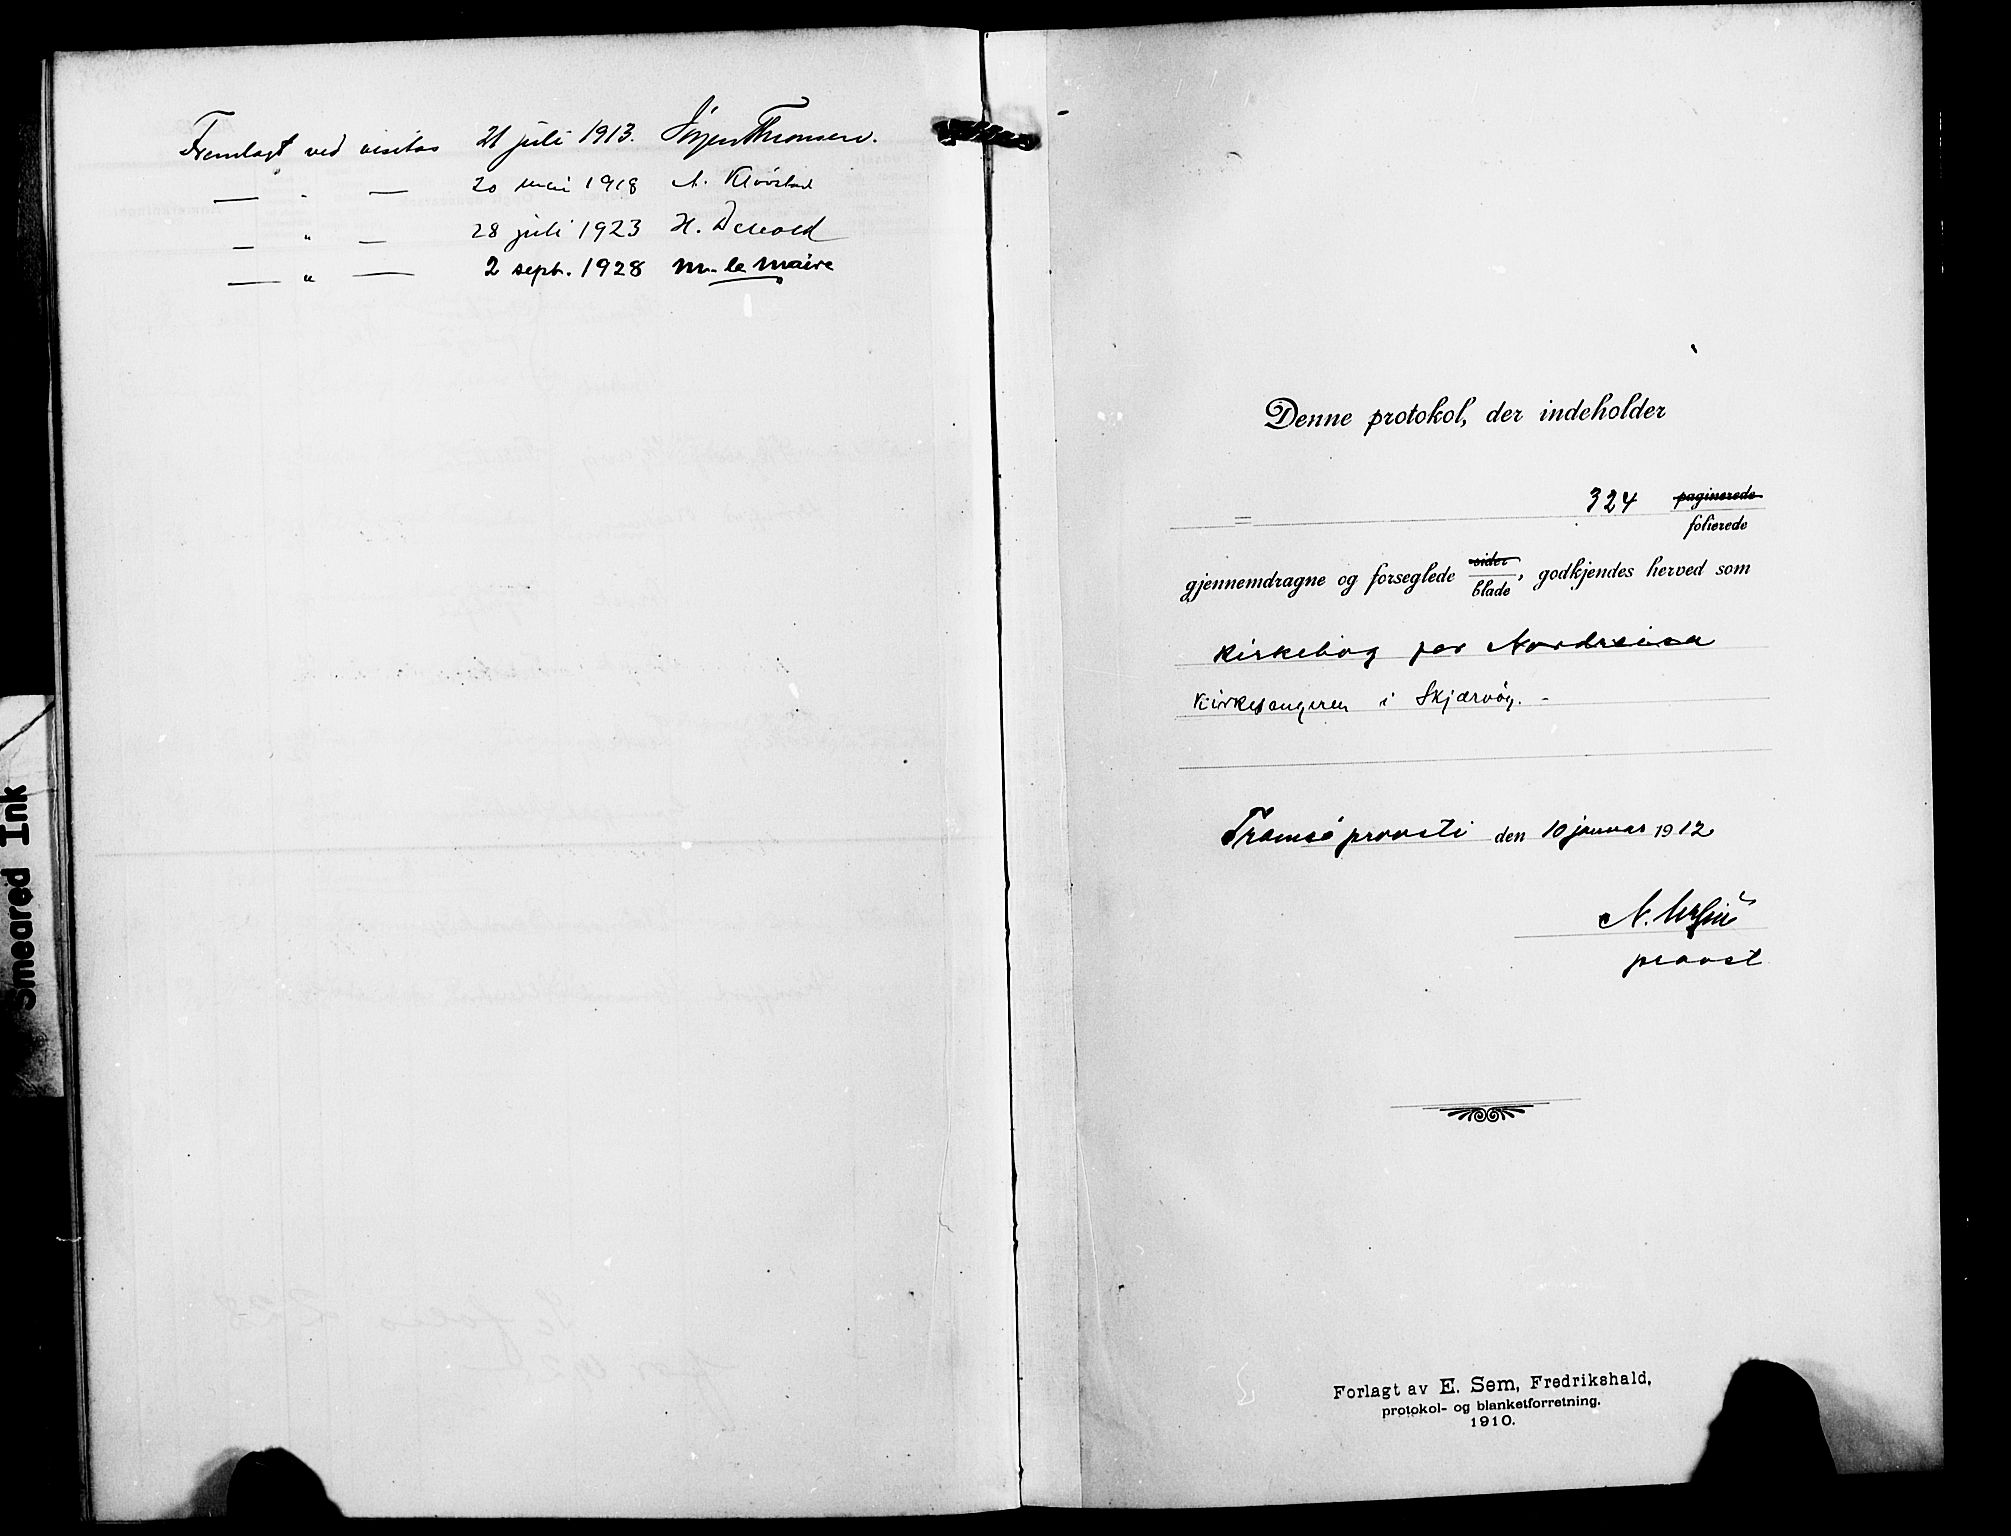 Fremlagt ved visitas 21 juli 1913.
— " — 20 mai 1918
— " — 28 juli 1923
— " — 2 sept. 1928 M. le Maire
Denne protokol, der indeholder
= 324 paginerede
folierede
gjennemdragne og forseglede sider
blade, godkjendes herved som
Kirkebog for Nordreisa
Kirkesangeren i Skjærvøy. -
Tromsø provsti den 10 januar 1912
provst
Forlagt av E. Sem, Fredrikshald,
protokol- og blanketforretning.
1910.
Smeared Ink